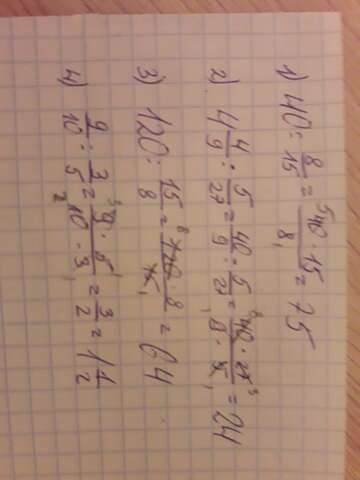 1) 40 : 8/15 = 40 · 15 / 8 = 75
2) 4 4/9 : 5/27 = 40/9 : 5/27 = 40 · 27 / 9 · 5 = 24
3) 120 : 15/8 = 120 · 8 / 15 = 64
4) 9/10 : 3/5 = 9 · 5 / 10 · 3 = 3/2 = 1 1/2